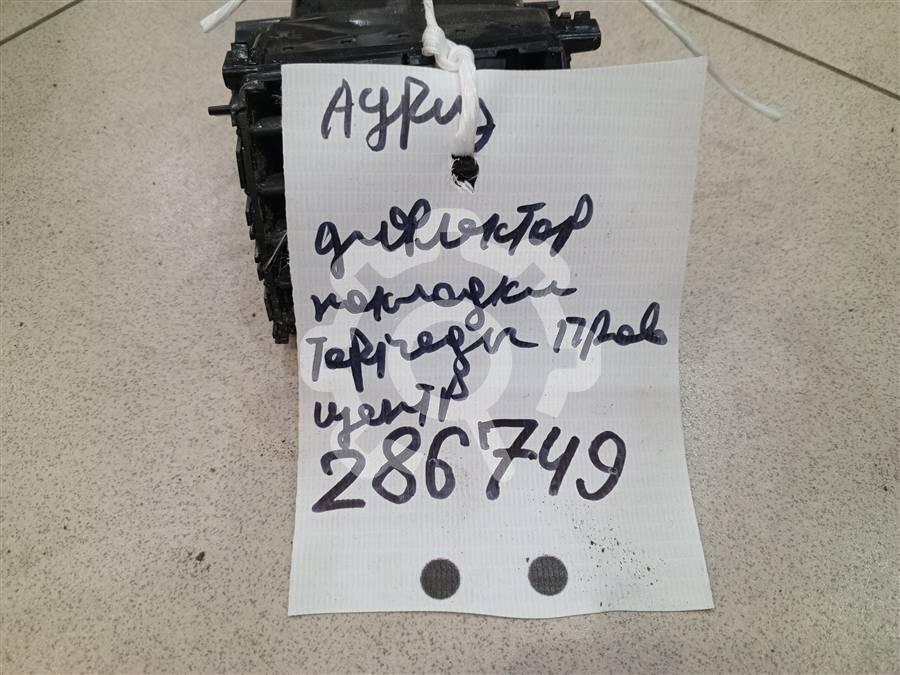 Аурис
дифлектор
накладки
торпеды прав
центр
286749